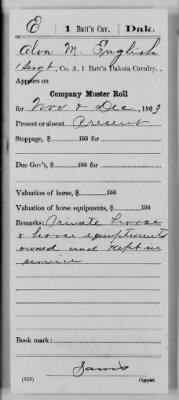 E | 1 Batt'n Cav. | Dak.
Alva M. English
1 Sergt, Co. A, 1 Batt'n Dakota Cavalry.
Appears on
Company Muster Roll
for Nov & Dec, 1863
Present or absent Present
Stoppage, $ 100 for
Due Gov't, $ 100 for
Valuation of horse, $ 100
Valuation of horse equipments, $ 100
Remarks: Private horse
& horse equipments
owned and kept in
service
Book mark:
(358) Copyist.